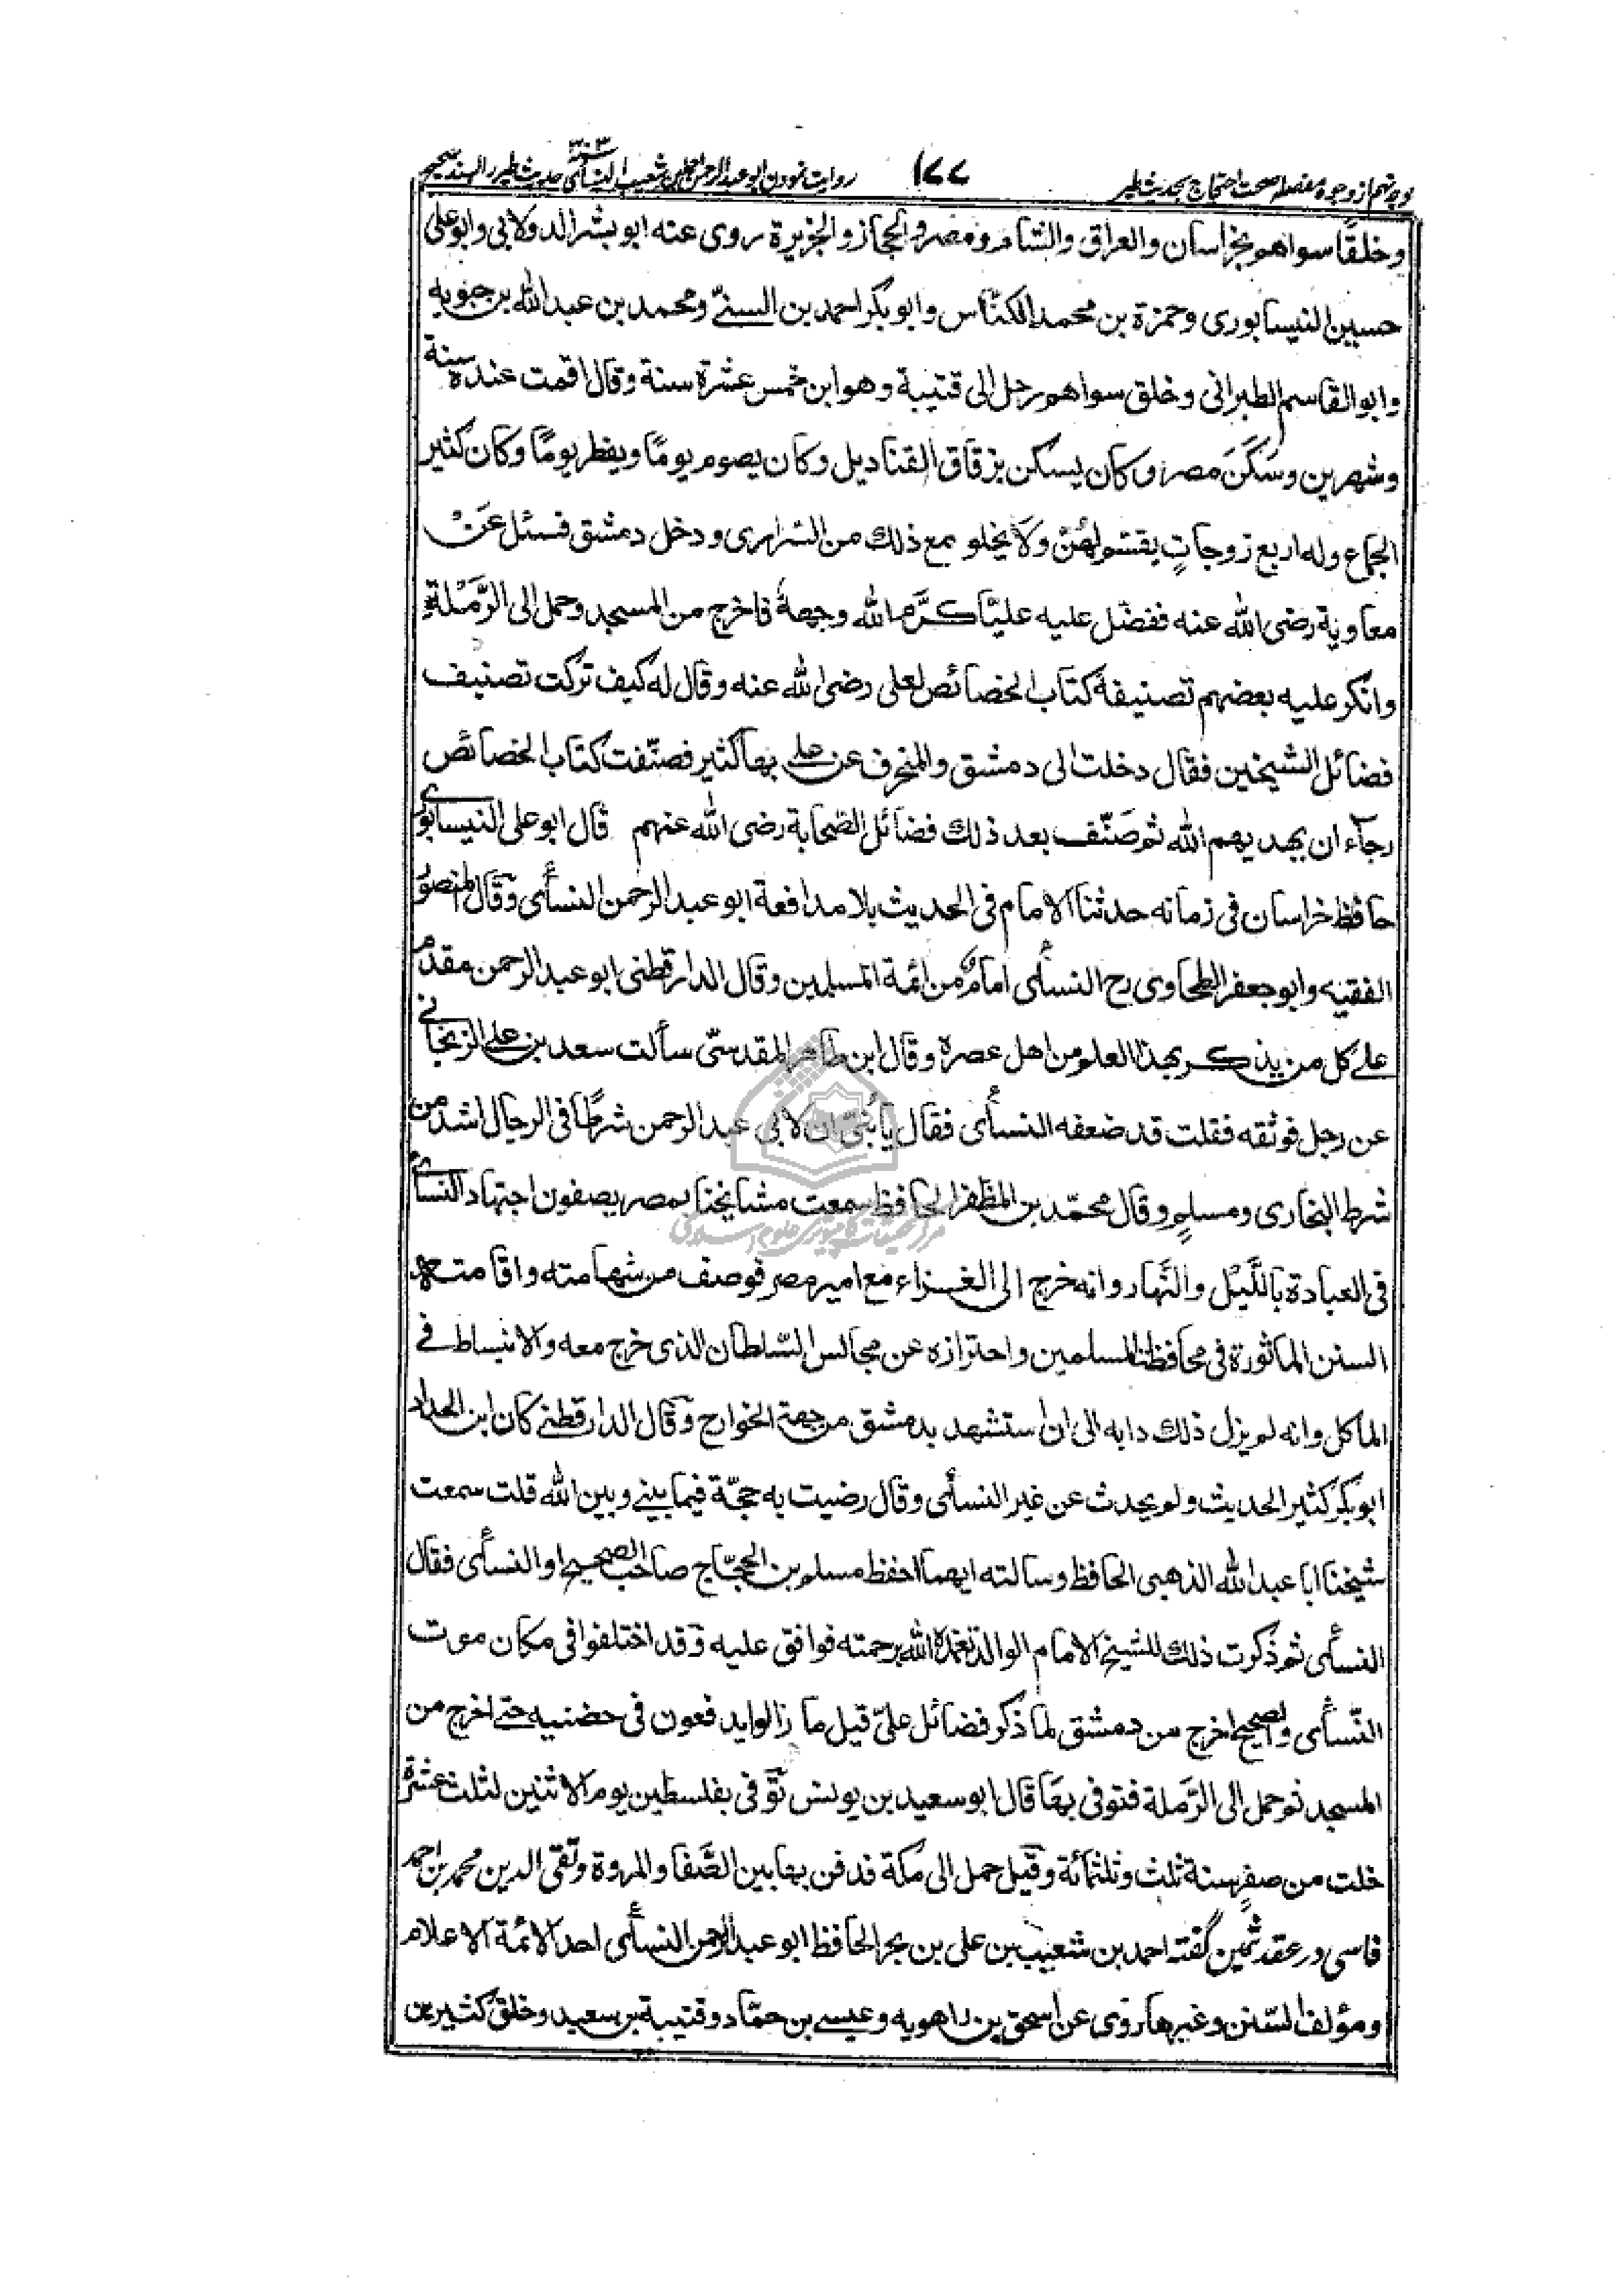 وجه نهم از وجوه مفصله صحت احتجاج بحديث طير ١٧٧ روايت نمودن ابو عبد الرحمن احمد بن شعيب النسائي ٣٠٣ حديث طير را بسند صحيح
وخلقًا سواهم بخراسان والعراق والشام ومصر والحجاز والجزيرة روى عنه ابو بشر الدولابي وابو على
حسين النيسابورى وحمزة بن محمد الكنانى وابو بكر احمد بن السنى ومحمد بن عبد الله بن حيويه
وابو القاسم الطبرانى وخلق سواهم رحل الى قتيبة وهو ابن خمس عشرة سنة وقال اقمت عنده سنة
وشهرين وسَكَنَ مصر وكان يسكن بزقاق القناديل وكان يصوم يومًا ويفطر يومًا وكان كثير
الجماع وله اربع زوجاتٍ يقسم لهُنّ ولا يخلو مع ذلك من السّرارى ودخل دمشق فسئل عَنْ
معاوية رضى الله عنه ففضّل عليه عليّا كرَّم الله وجههُ فاخرج من المسجد وحمل الى الرَّمْلة
وانكر عليه بعضهم تصنيفهُ كتاب الخصائص لعلى رضى الله عنه وقال له كيف تركت تصنيف
فضائل الشيخين فقال دخلت الى دمشق والمنحرف عن على بها كثير فصنّفت كتاب الخصائص
رجاء ان يهديهم الله ثم صَنّف بعد ذلك فضائل الصّحابة رضى الله عنهم قال ابو على النيسابورى
حافظ خراسان فى زمانه حدثنا الامام فى الحديث بلا مدافعة ابو عبد الرحمن النسأى وقال المنصور
الفقيه وابو جعفر الطحاوى رح النسأى امامٌ من ائمة المسلمين وقال الدارقطنى ابو عبد الرحمن مقدم
على كل من يذكر بهذا العلم من اهل عصره وقال ابن طاهر المقدسىّ سألت سعد بن على الزنجانى
عن رجل فوثقه فقلت قد ضعفه النسأى فقال يا بُنىّ ان لابى عبد الرحمن شرطًا فى الرجال اشد من
شرط البخارى ومسلمٍ وقال محمّد بن المظفر الحافظ سمعت مشايخنا بمصر يصفون اجتهاد النسأى
فى العبادة باللَّيْل والنّهار وانه خرج الى الغزاء مع امير مصر فوصف من شهامته واقامته
السنن الماثورة فى محافظة المسلمين واحترازه عن مجالس السّلطان الذى خرج معه والانبساط فى
الماكل وانه لم يزل ذلك دابه الى ان استشهد بدمشق من جهة الخوارج وقال الدارقطنى كان ابن الحداد
ابو بكر كثير الحديث ولم يحدث عن غير النسأى وقال رضيت به حجّة فيما بينى وبين الله قلت سمعت
شيخنا ابا عبد الله الذهبى الحافظ وسالته ايهما احفظ مسلم بن الحجّاج صاحب الصحيح او النسأى فقال
النسأى ثم ذكرت ذلك للشيخ الامام الوالد تغمده الله برحمته فوافق عليه وقد اختلفوا فى مكان موت
النّسأى والصحيح اخرج من دمشق لما ذكر فضائل علىّ قيل ما زالوا يدفعون فى حضنيه حتى اخرج من
المسجد ثم حمل الى الرّملة فتوفى بها قال ابو سعيد بن يونس توفى بفلسطين يوم الاثنين لثلث عشرة
خلت من صفر سنة ثلث وثلثمائة وقيل حمل الى مكة فدفن بها بين الصّفا والمروة وتقى الدين محمد بن احمد
فاسى در عقد ثمين گفته احمد بن شعيب بن على بن بحر الحافظ ابو عبد الرحمن النسأى احد الائمة الاعلام
ومؤلف السّنن وغيرها روى عن اسحق بن راهويه وعيسى بن حمّاد وقتيبة بن سعيد وخلق كثيرين
مركز تحقيقات كامپيوترى علوم اسلامى